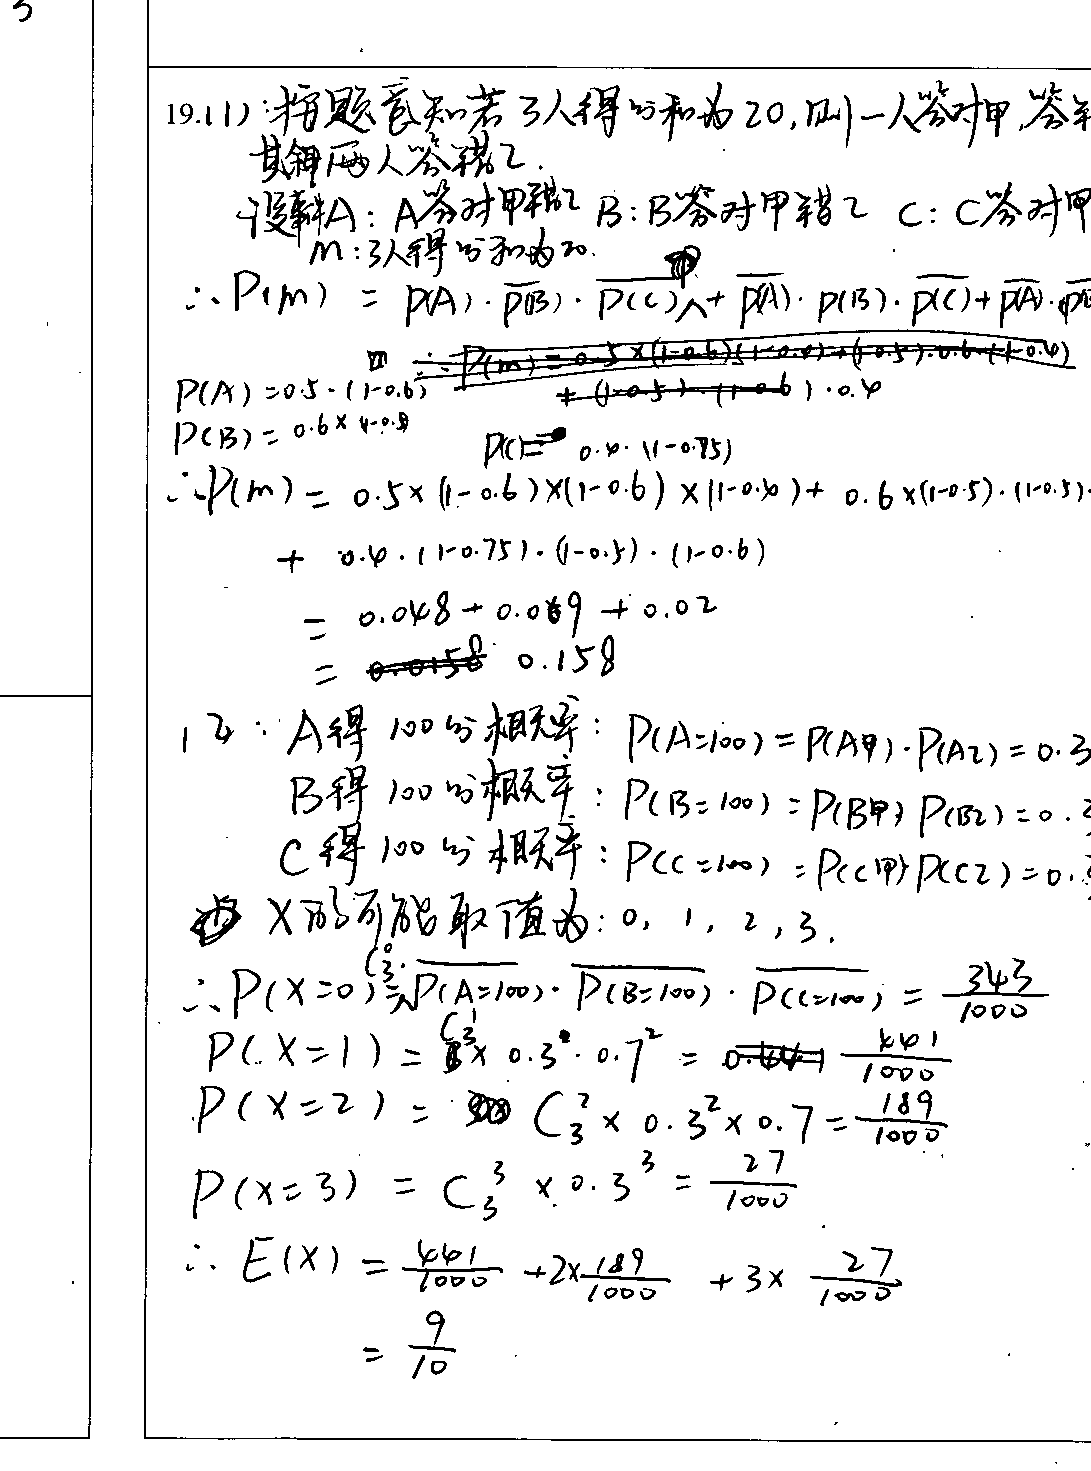 5
19.(1):据题意知若3人得分和为20,则一人答对甲,答
其余两人答错乙.
设事件A: A答对甲错乙 B:B答对甲错乙 C: C答对甲
M:3人得分和为20.
∴P(M) = P(A)·P̅(̅B̅)̅·P̅(̅C̅)̅ + P̅(̅A̅)̅·P(B)·P̅(̅C̅)̅+P̅(̅A̅)̅·
P(A)=0.5·(1-0.6)
P(B)=0.6×(1-0.5)
P(C)= 0.4·(1-0.75)
∴P(M) = 0.5×(1-0.6)×(1-0.6)×(1-0.4)+ 0.6×(1-0.5)·(1-0.5)·
+ 0.4·(1-0.75)·(1-0.5)·(1-0.6)
= 0.048+0.09+0.02
= 0.158
12: A得100分概率: P(A=100)=P(A甲)·P(A乙)=0.3
B得100分概率: P(B=100)=P(B甲)P(B乙)=0.
C得100分概率: P(C=100)=P(C甲)P(C乙)=0.
X的可能取值为:0, 1, 2, 3.
∴P(X=0)=C₃⁰·P̅(̅A̅=̅1̅0̅0̅)̅·P̅(̅B̅=̅1̅0̅0̅)̅·P̅(̅C̅=̅1̅0̅0̅)̅ = 343/1000
P(X=1) = C₃¹× 0.3·0.7² = 441/1000
P(X=2) = C₃²×0.3²×0.7=189/1000
P(X=3) = C₃³×0.3³=27/1000
∴E(X) = 441/1000 +2×189/1000 +3×27/1000
= 9/10